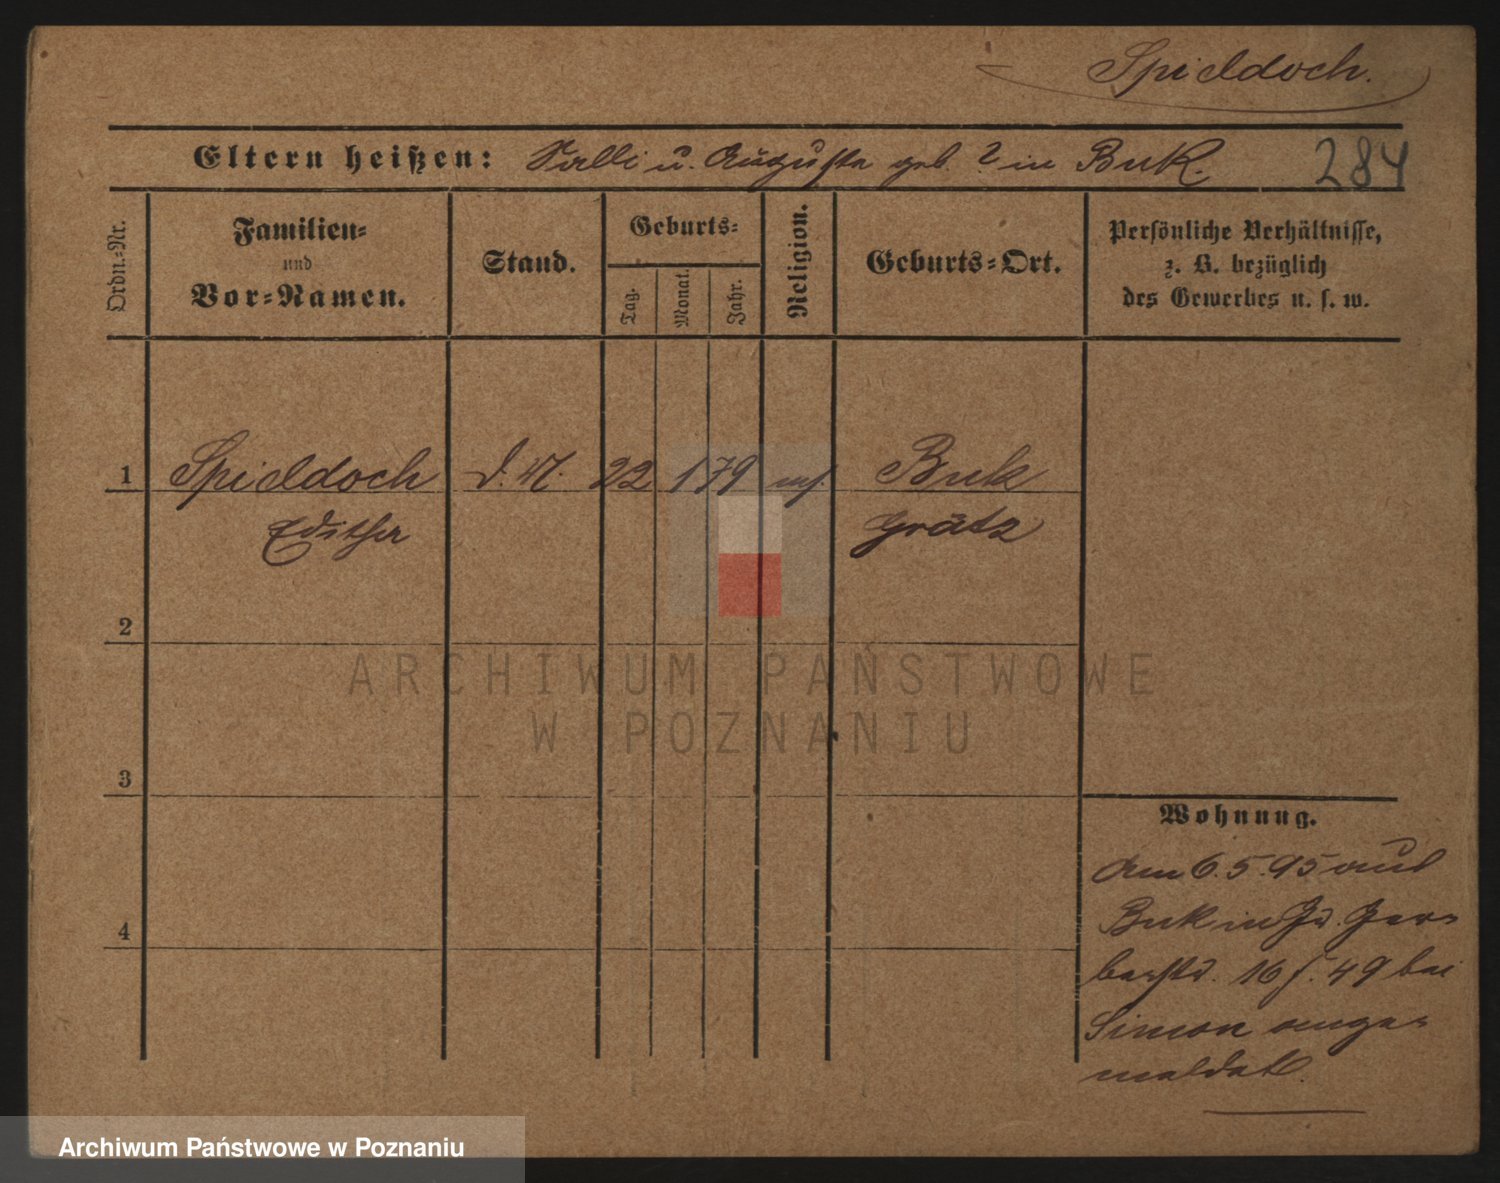 Spieldoch.
Eltern heißen: Salli u. Auguste geb. ? in Buk.
284
Ordn.-Nr.
Familien-
und
Vor-Namen.
Stand.
Geburts-
Tag.
Monat.
Jahr.
Religion.
Geburts-Ort.
Persönliche Verhältnisse,
z. B. bezüglich
des Gewerbes u. s. w.
1 Spieldoch 22 1 79 Buk
Edithe Grätz
2
3
4
Wohnung.
Am 6.5.95 aus
Buk in Ger-
berstr. 16 f. 49 bei
Simon ange-
meldet.
ARCHIWUM PAŃSTWOWE
W POZNANIU
Archiwum Państwowe w Poznaniu